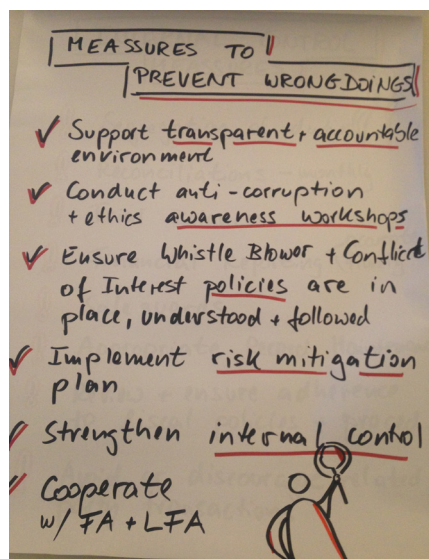 MEASSURES TO
PREVENT WRONGDOINGS
Support transparent + accountable
environment
Conduct anti-corruption
+ ethics awareness workshops
Ensure Whistle Blower + Conflict
of Interest policies are in
place, understood + followed
Implement risk mitigation
plan
Strengthen internal control
Cooperate
w/ FA + LFA